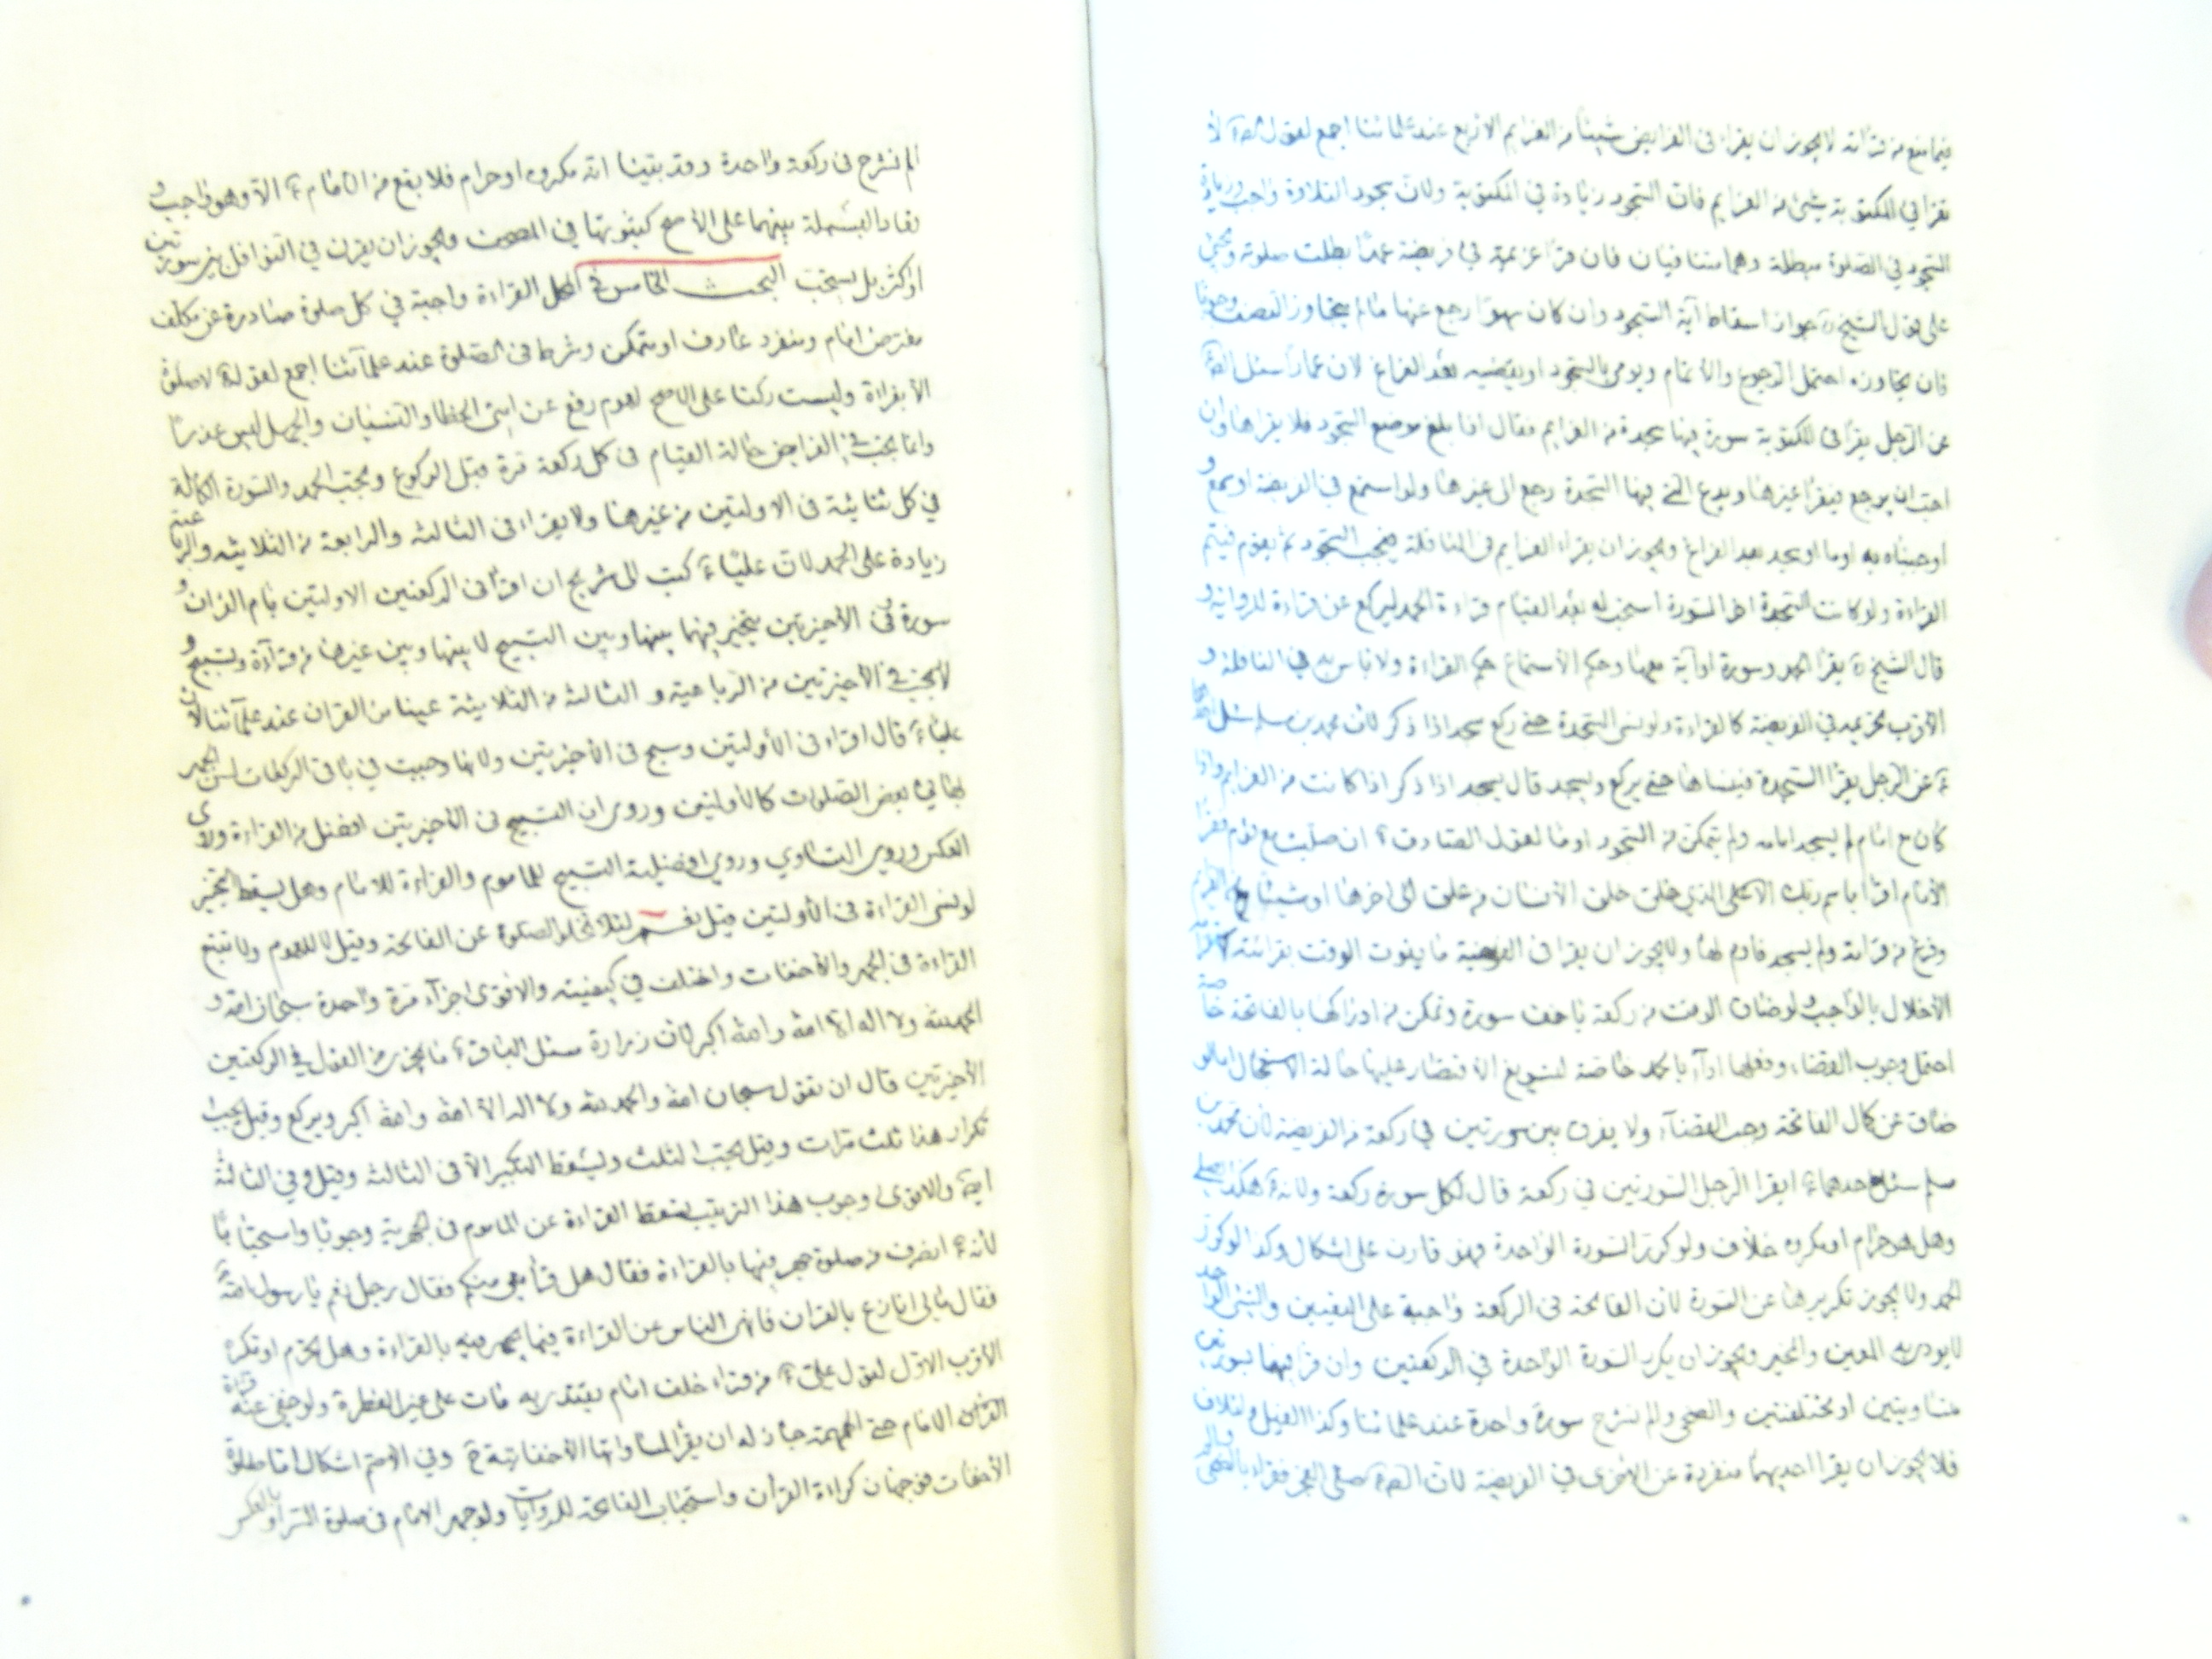 فيما يمنع من قرائته لا يجوز ان يقراء في الفرايض شيئا من العزايم الاربع عند علمائنا اجمع لقول الص؏ لا
تقرا في المكتوبة بشئ من العزايم فان السجود زيادة في المكتوبة ولان سجود التلاوة واجب وزيادة
السجود في الصلوة مبطلة وهما متنافيان فان قرا عزيمة في فريضة عمدا بطلت صلوته ويجئ
على قول الشيخ ره جواز اسقاط آية السجود وان كان سهوا رجع عنها ما لم يتجاوز النصف وجوبا
فان تجاوزه احتمل الرجوع والاتمام ويومي بالسجود او يقضيه بعد الفراغ لان عمارا سئل الص؏
عن الرجل يقرا في المكتوبة سورة فيها سجدة من العزايم فقال اذا بلغ موضع السجود فلا يقراها وان
احب ان يرجع فيقرا غيرها ويدع التي فيها السجدة رجع الى غيرها ولو استمع في الفريضة او سمع و
اوجبناه به اوما او سجد بعد الفراغ ويجوز ان يقراء العزايم في النافلة فيجب السجود ثم يقوم فيتم
القراءة ولو كانت السجدة اخر السورة استحب له بعد القيام قراءة الحمد ليركع عن قراءة للرواية و
قال الشيخ ره يقرا الحمد وسورة او آية معها وحكم الاستماع حكم القراءة ولا باس به في النافلة و
الاقرب تحريمه في الفريضة كالقراءة ولو نسي السجدة حتى ركع سجد اذا ذكر لان محمد بن مسلم سئل
؏ عن الرجل يقرا السجدة فينساها حتى يركع ويسجد قال يسجد اذا ذكر اذا كانت من العزايم واذا
كان مع امام لم يسجد امامه ولم يتمكن من السجود اوما لقول الصادق ؏ ان صليت مع قوم فقرا
الامام اقرا باسم ربك الاعلى الذي خلق خلق الانسان من علق الى اخرها او شيئا من العزايم
وفرغ من قرائته ولم يسجد فاوم لها ولا يجوز ان يقرا في الفريضة ما يفوت الوقت بقرائته
الاخلال بالواجب ولو ضاق الوقت من ركعة باخف سورة وتمكن من ادراكها بالفاتحة خاصة
احتمل وجوب القضاء وفعلها اداء بالحمد خاصة لتسويغ الاقتصار عليها حالة الاستعجال اما لو
ضاق عن كمال الفاتحة وجب القضاء ولا يقرن بين سورتين في ركعة من الفريضة لان محمد بن
مسلم سئل احدهما ؏ ايقرا الرجل السورتين في ركعة قال لكل سورة ركعة ولانه ؏ هكذا صلى
وهل هو حرام او مكروه خلاف ولو كرر السورة الواحدة فهو قارن على اشكال وكذا لو كرر
الحمد ولا يجوز تكريرها عن السورة لان الفاتحة في الركعة واجبة على اليقين والشئ الواحد
لا يودى به المعين والمخير ويجوز ان يكرر السورة الواحدة في الركعتين وان قرا فيهما بسورتين
متساويتين او مختلفتين والضحى والم نشرح سورة واحدة عند علمائنا وكذا الفيل ولايلاف
فلا يجوز ان يقرا احديهما منفردة عن الاخرى في الفريضة لان الص؏ صلى الفجر فقراء بالضحى و
الم نشرح في ركعة واحدة وقد بينا انه مكروه او حرام فلا يقع من الامام ؏ الا وهو واجب و
تعاد البسملة بينهما على الاصح كثبوتها في المصحف ويجوز ان يقرن في النوافل بين سورتين
او اكثر بل يستحب البحث الخامس في المحل القراءة واجبة في كل صلوة صادرة عن مكلف
مفترض امام ومنفرد عارف او متمكن وشرط في الصلوة عند علمائنا اجمع لقوله ؏ لا صلوة
الا بقراءة وليست ركنا على الاصح لعموم رفع عن امتي الخطا والنسيان والجهل ليس عذرا
وانما يجب في الفرايض حالة القيام في كل ركعة مرة قبل الركوع ويجب الحمد والسورة الكاملة
في كل ثنائية في الاولتين من غيرها ولا يقراء في الثالثة والرابعة من الثلاثية والرباعية
زيادة على الحمد لان عليا ؏ كتب الى شريح ان اقرا في الركعتين الاولتين بام القران و
سورة وفي الاخيرتين يتخير فيهما بينها وبين التسبيح لا بينها وبين غيرها من قراءة وتسبيح و
لا يجب في الاخيرتين من الرباعية و الثالثة من الثلاثية عينا من القران عند علمائنا لان
عليا ؏ قال اقراء في الاولتين وسبح في الاخيرتين ولانها وجبت في باقي الركعات لسن الجهر
بها في بعض الصلوات كالاولتين وروى ان التسبيح في الاخيرتين افضل من القراءة وروى
العكس وروى التساوي وروى افضيلية التسبيح للماموم والقراءة للامام وهل يسقط التخيير
لو نسي القراءة في الاولتين قيل نعم لئلا تخلو الصلوة عن الفاتحة وقيل لا للعموم ولا تتبع
القراءة في الجهر والاخفات واختلف في كيفيته والاقوى اجزاء مرة واحدة سبحان الله و
الحمد لله ولا اله الا الله والله اكبر لان زرارة سئل الباقر ؏ ما يجزى من القول في الركعتين
الاخيرتين قال ان تقول سبحان الله والحمد لله ولا اله الا الله والله اكبر ويركع وقيل يجب
تكرار هذا ثلث مرات وقيل يجب الثلث ويسقط التكبير الا في الثالثة وقيل وفي الثالثة
ايضا والاقوى وجوب هذا الترتيب وتسقط القراءة عن الماموم في الجهرية وجوبا واستحبابا
لانه ؏ انصرف من صلوة جهر فيها بالقراءة فقال هل قرأ معي منكم فقال رجل نعم يا رسول الله
فقال مالي انازع بالقران فانتهى الناس عن القراءة فيما يجهر فيه بالقراءة وهل يحرم او تكره
الاقرب الاول لقول علي ؏ من قراء خلف امام يقتدى به مات على غير الفطرة ولو خفي عنه قراءة
القران الامام حتى الهمهمة جاز له ان يقرا لمساواتها الاخفاتية ح وفي الاصم اشكال اما صلوة
الاخفات فوجهان كراهة القرآن واستحباب الفاتحة للروايات ولو جهر الامام في صلوة السر او بالعكس